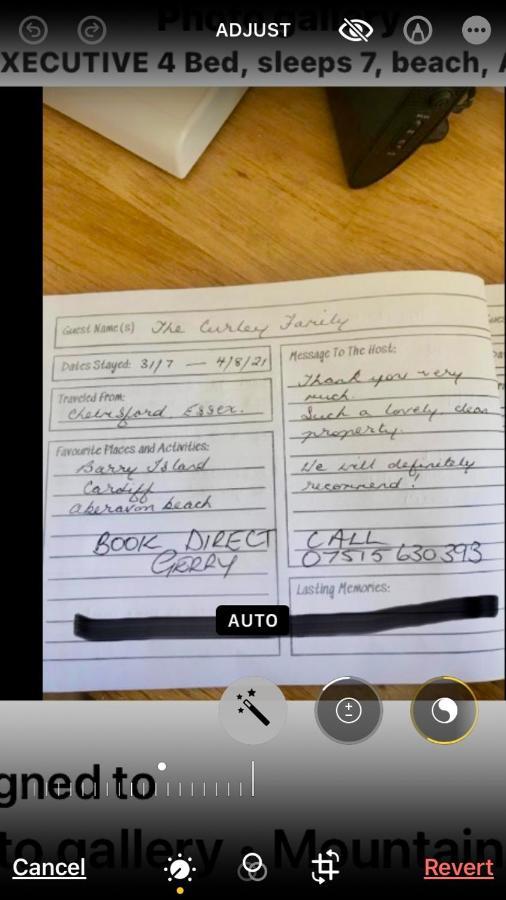 Photo gallery
ADJUST
XECUTIVE 4 Bed, sleeps 7, beach, A
Guest Name(s) The Curley Family
Dates Stayed: 31/7 — 4/8/21
Traveled From:
Chelmsford, Essex.
Favourite Places and Activities:
Barry Island
Cardiff
aberavon beach
BOOK DIRECT
GERRY
Message To The Host:
Thank you very
much.
Such a lovely, clean
property.
We will definitely
recommend!
CALL
07515 630393
Lasting Memories:
AUTO
gned to
to gallery · Mountain
Cancel
Revert